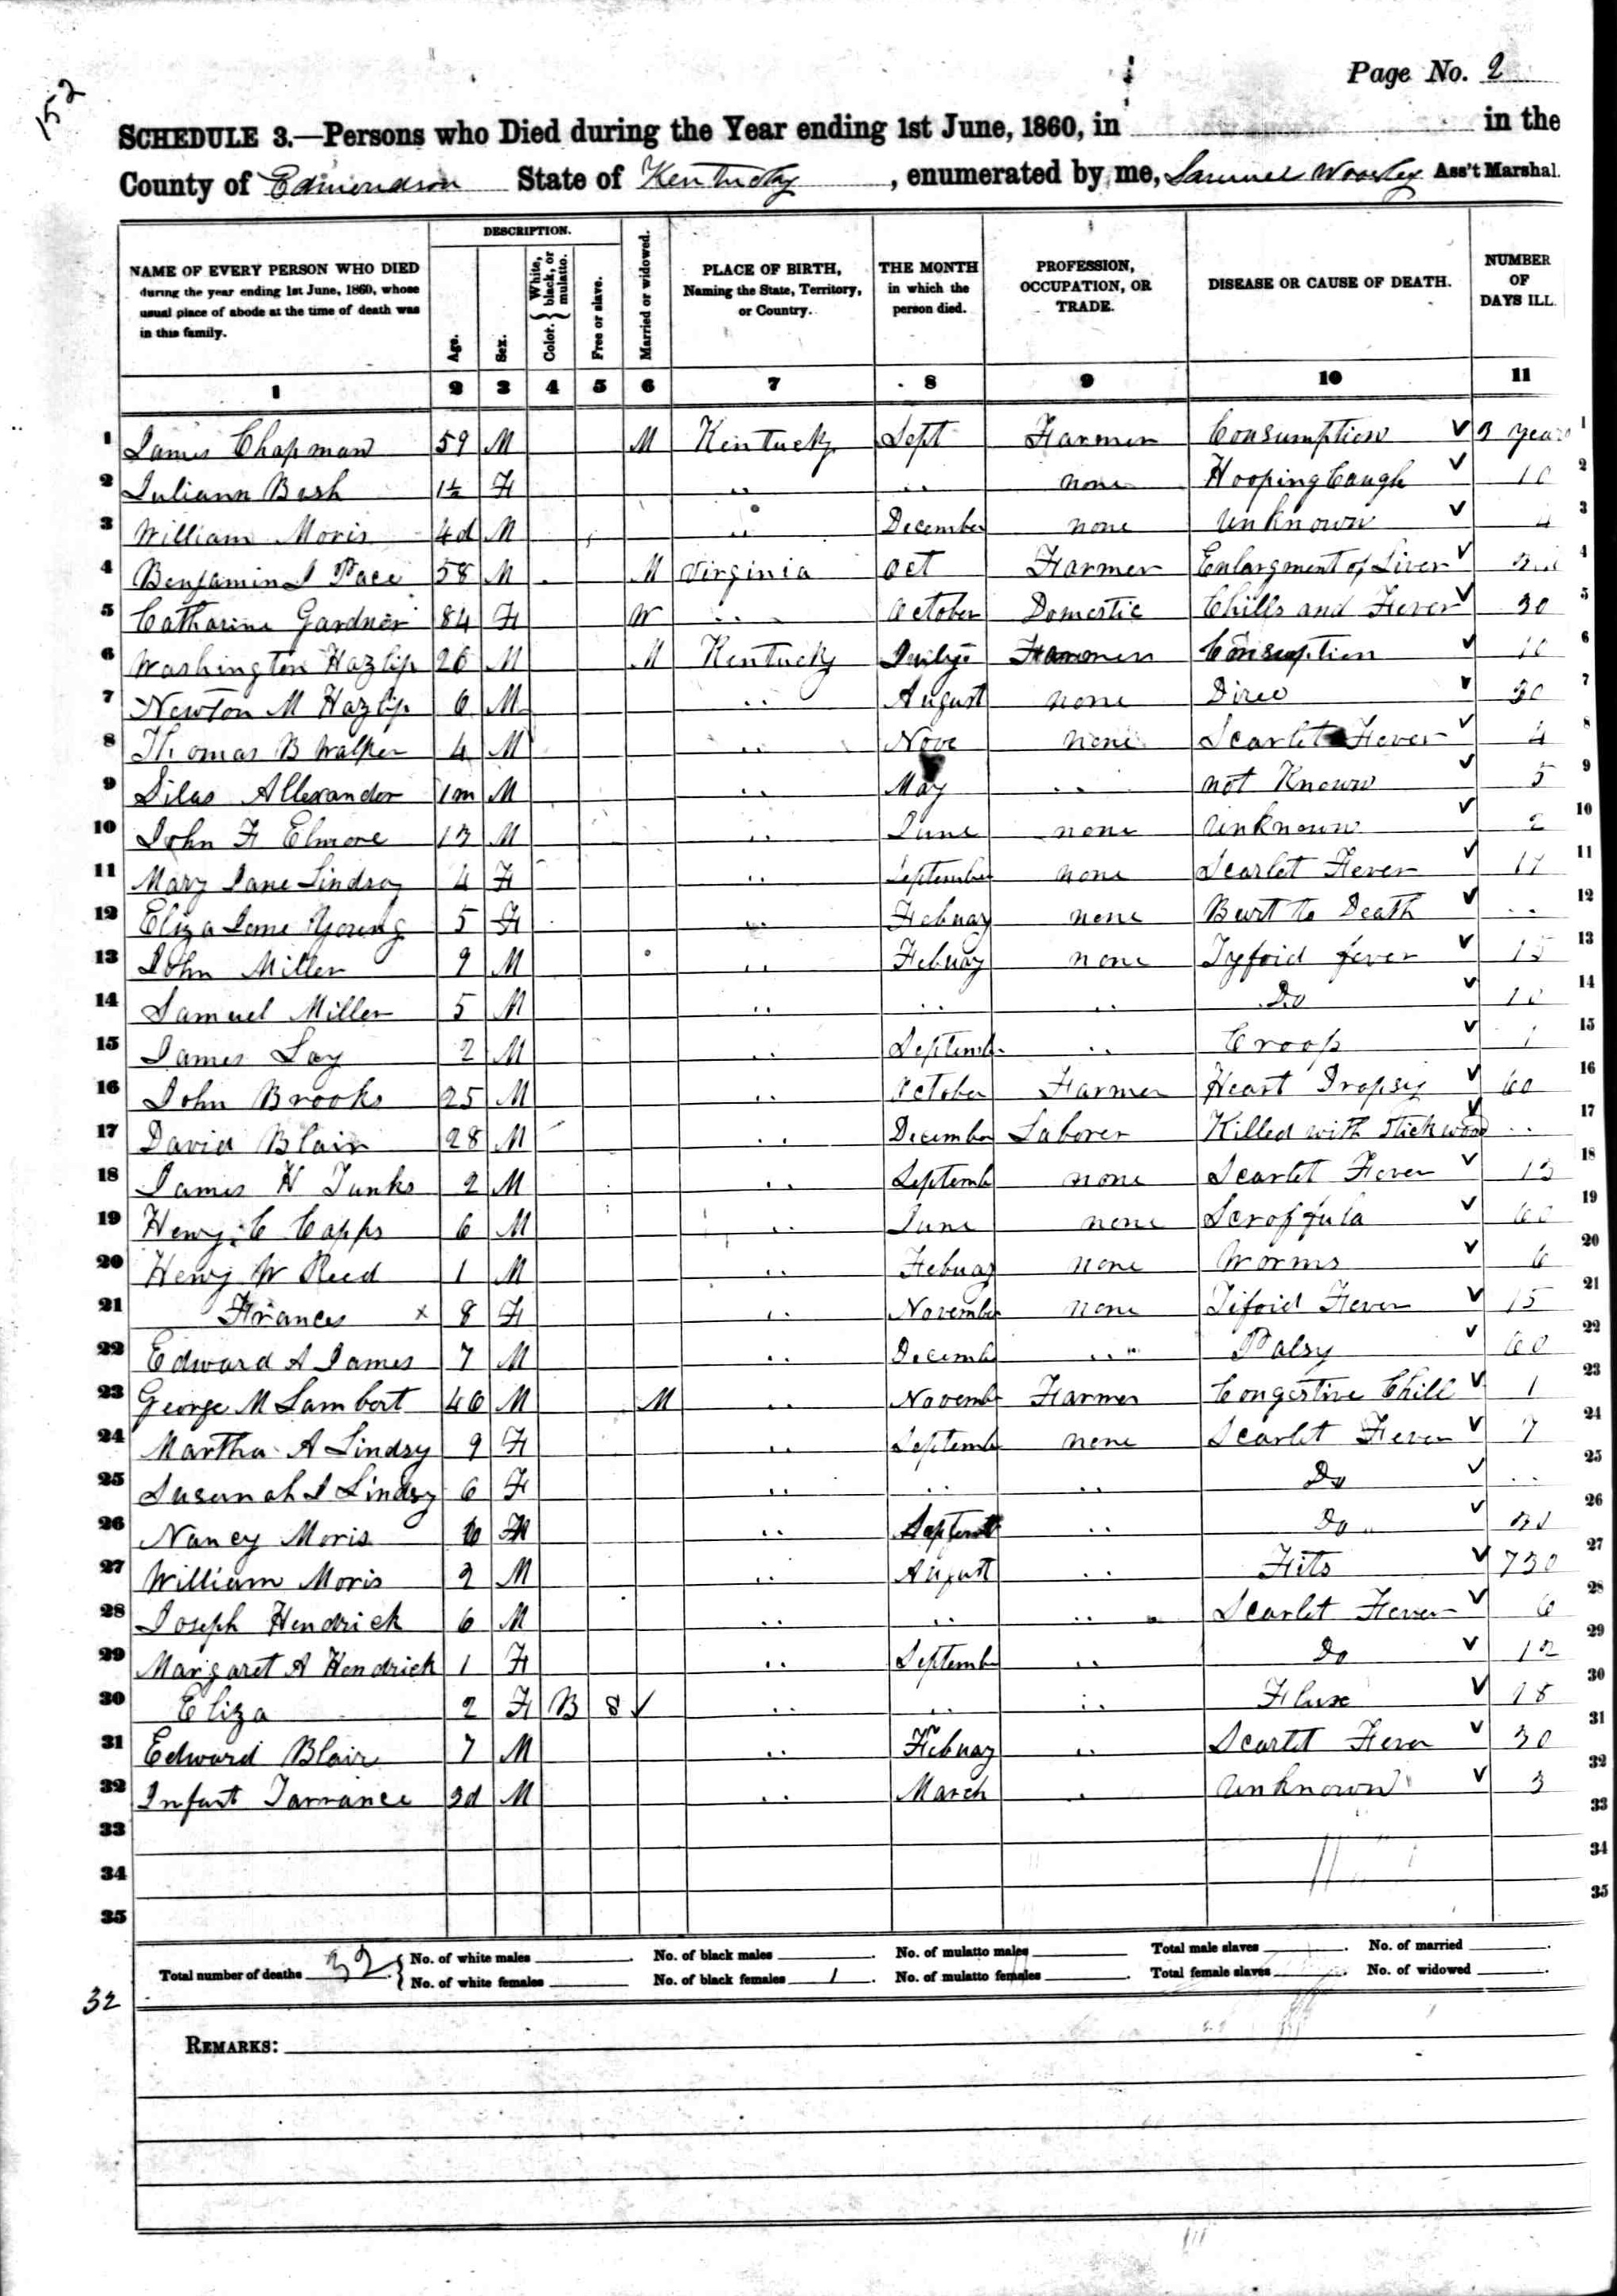 Page No. 2
152
SCHEDULE 3.—Persons who Died during the Year ending 1st June, 1860, in in the
County of Edmondson State of Kentucky, enumerated by me, Samuel Woosley Ass't Marshal.
NAME OF EVERY PERSON WHO DIED during the year ending 1st June, 1860, whose usual place of abode at the time of death was in this family.
DESCRIPTION.
Age.
Sex.
Color. { White, black, or mulatto.
Free or slave.
Married or widowed.
PLACE OF BIRTH, Naming the State, Territory, or Country.
THE MONTH in which the person died.
PROFESSION, OCCUPATION, OR TRADE.
DISEASE OR CAUSE OF DEATH.
NUMBER OF DAYS ILL.
1 2 3 4 5 6 7 8 9 10 11
1 James Chapman 59 M M Kentucky Sept Farmer Consumption ✓ 3 years 1
2 Juliann Bash 1½ F " " none Hooping Caugh ✓ 10 2
3 William Moris 4d M " December none unknown ✓ 4 3
4 Benjamin J Pace 58 M M Virginia Oct Farmer Enlargment of Liver ✓ 4
5 Catharine Gardner 84 F W " October Domestic Chills and Fever ✓ 30 5
6 Washington Hazlip 26 M M Kentucky Farmer Consumption ✓ 10 6
7 Newton M Hazlip 6 M " August none ✓ 30 7
8 Thomas B Walker 4 M " Nove none Scarlet Fever ✓ 4 8
9 Silas Allexander 1m M " May " not Known ✓ 5 9
10 John F Elmore 13 M " June none unknown ✓ 2 10
11 Mary Jane Lindsy 4 F " September none Scarlet Fever ✓ 17 11
12 Eliza Jane Young 5 F " Febuay none Burt to Death ✓ " 12
13 John Miller 9 M " Febuay none Tyfoid fever ✓ 15 13
14 Samuel Miller 5 M " " " Do ✓ 10 14
15 James Lay 2 M " Septemb " Croop ✓ 1 15
16 John Brooks 25 M " October Farmer Heart Dropsy ✓ 60 16
17 David Blair 28 M " December Laborer Killed with Stick wood ✓ " 17
18 James H Tunks 2 M " Septemb none Scarlet Fever ✓ 13 18
19 Henry C Capps 6 M " June none Scroffula ✓ 60 19
20 Henry W Reed 1 M " Febuay none Worms ✓ 6 20
21 Frances x 8 F " November none Tifoid Fever ✓ 15 21
22 Edward A James 7 M " Decemb " Palsy ✓ 60 22
23 George M Lambert 46 M M " Novemb Farmer Congestive Chill ✓ 1 23
24 Martha A Lindsy 9 F " Septemb none Scarlet Fever ✓ 7 24
25 Susanah J Lindsy 6 F " " " Do ✓ " 25
26 Nancy Moris 6 F " Septemb " Do ✓ 26
27 William Moris 2 M " August " Fits ✓ 730 27
28 Joseph Hendrick 6 M " " " Scarlet Fever ✓ 6 28
29 Margaret A Hendrick 1 F " Septemb " Do ✓ 12 29
30 Eliza 2 F B S ✓ " " " Flux ✓ 18 30
31 Edward Blair 7 M " Febuay " Scarlet Fever ✓ 30 31
32 Infant Tarrance 3d M " March " unknown ✓ 3 32
33 33
34 34
35 35
Total number of deaths 32 { No. of white males No. of black males No. of mulatto males Total male slaves No. of married
No. of white females No. of black females 1 No. of mulatto females Total female slaves No. of widowed
32
REMARKS: